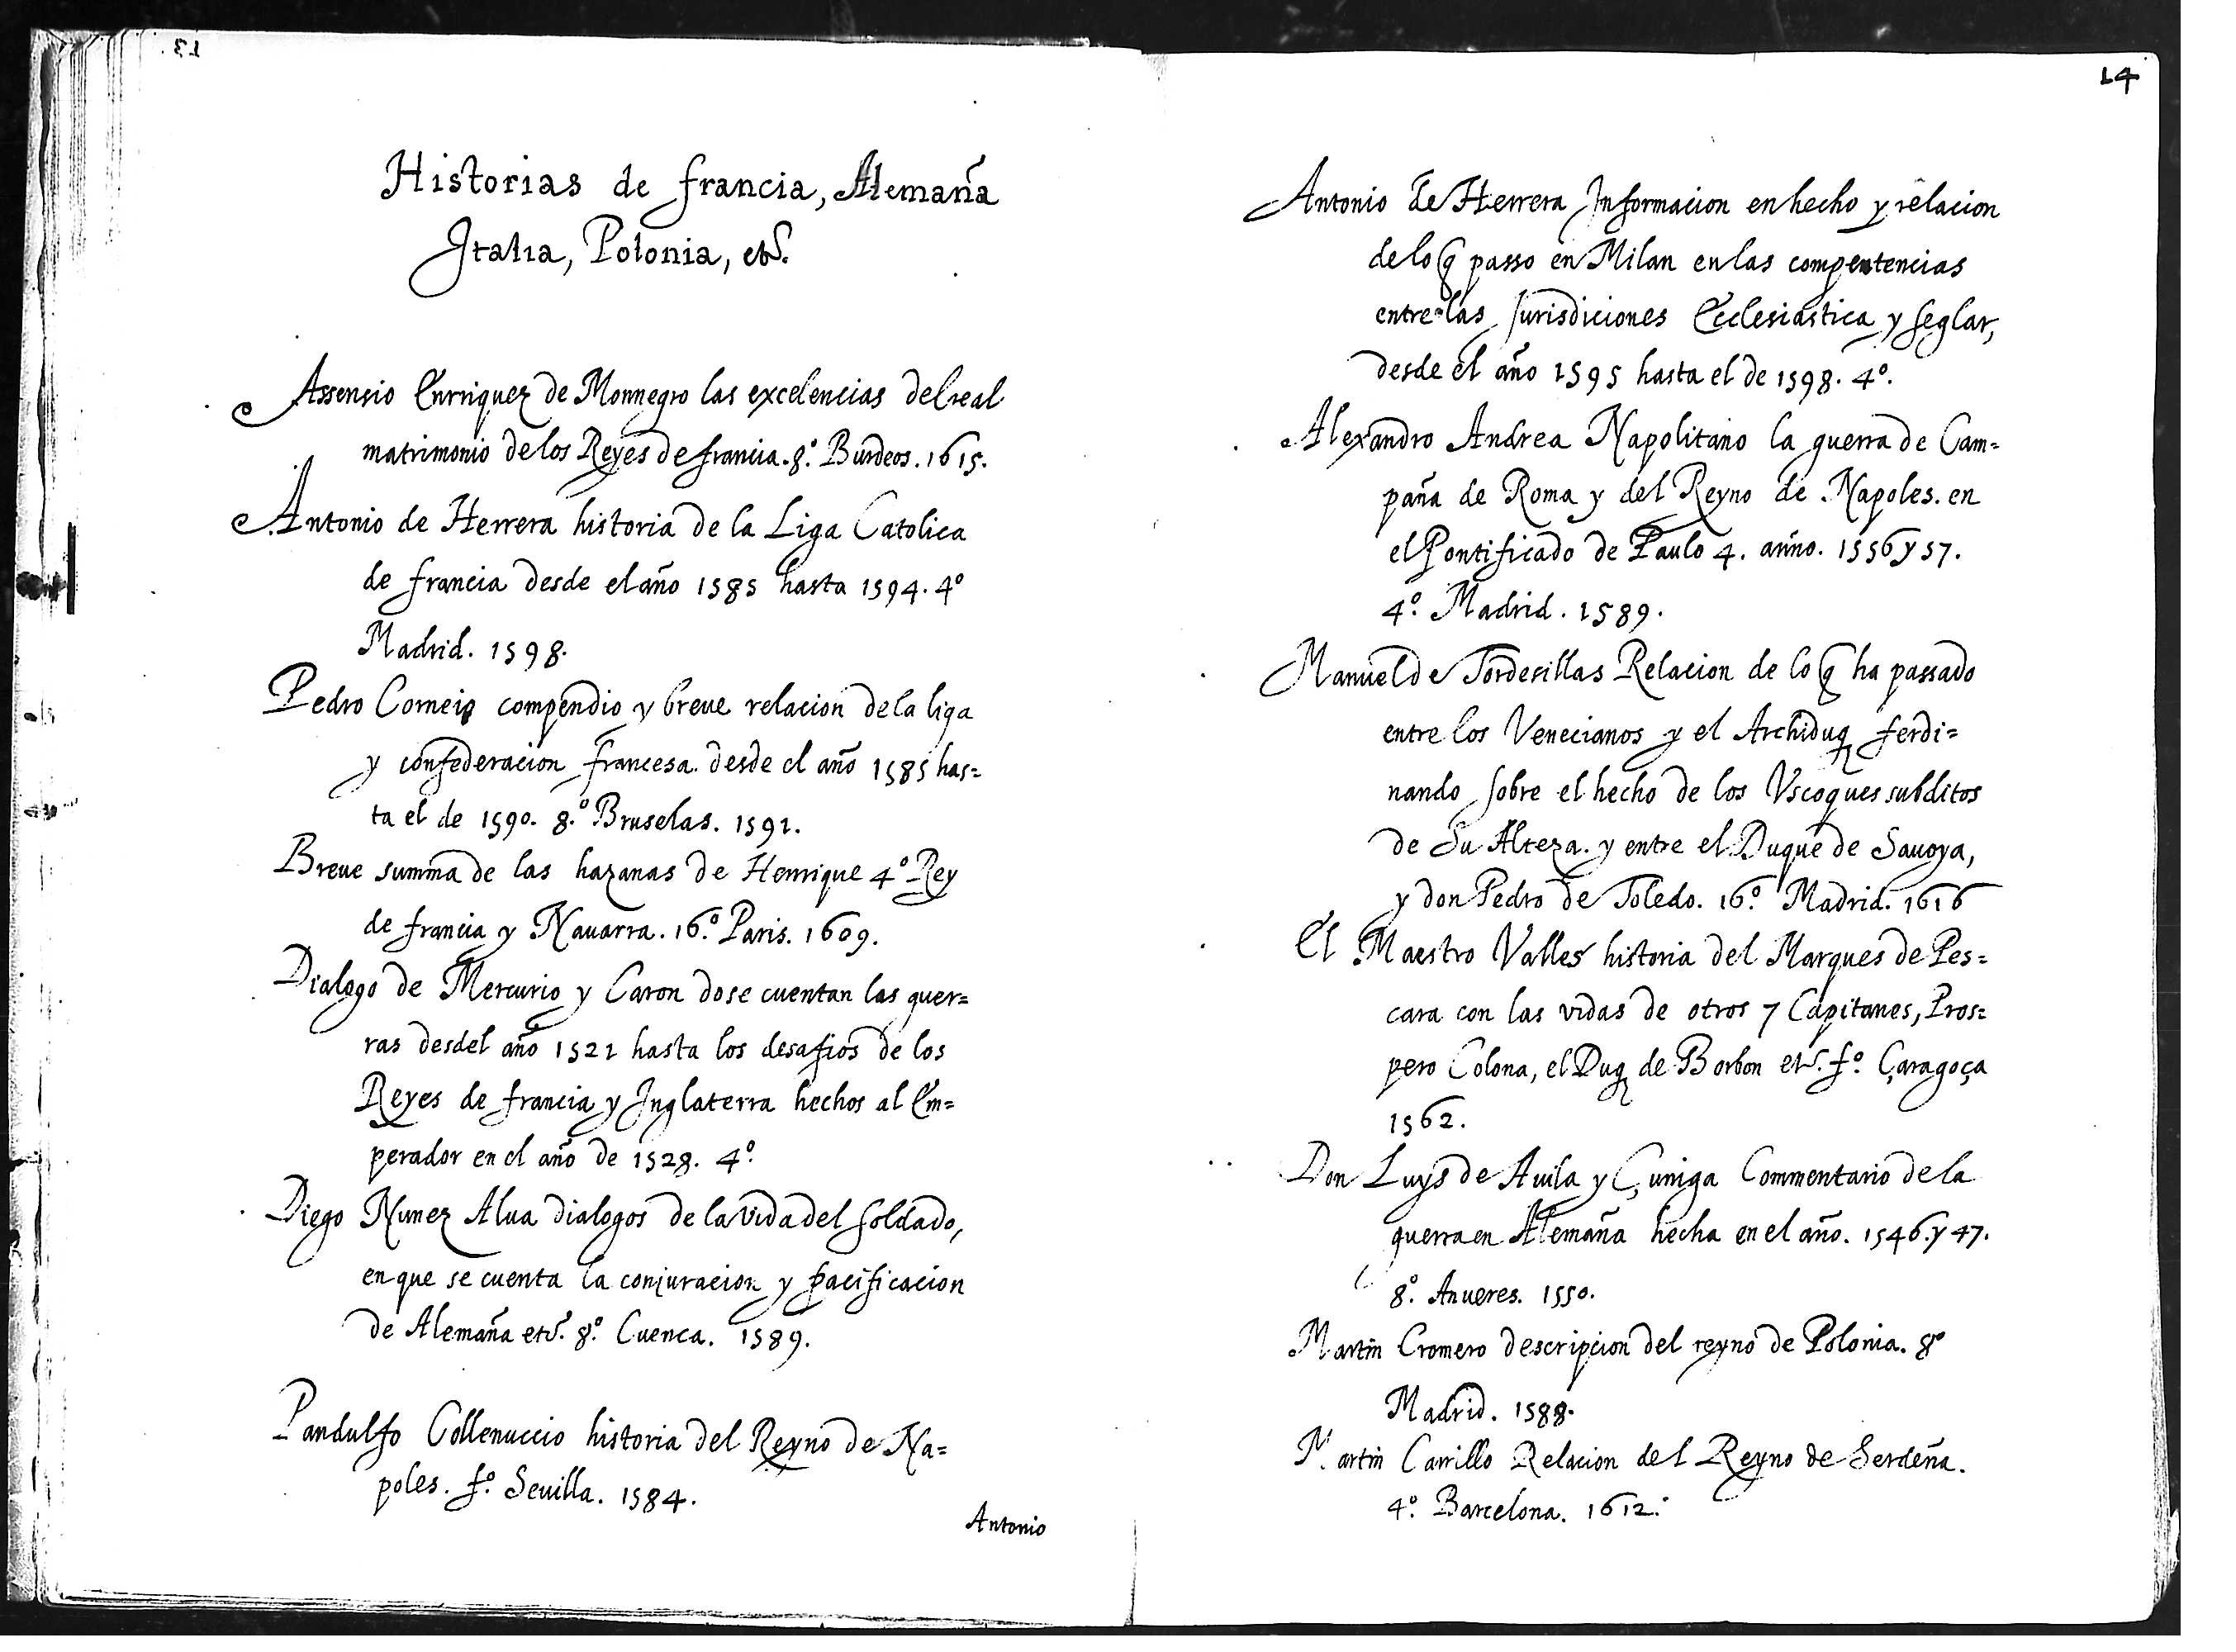 13.
Historias de francia, Alemaña
Italia, Polonia, etc.
Assensio Enrriquez de Monnegro las excelencias del real
matrimonio de los Reyes de francia. 8.º Burdeos. 1615.
Antonio de Herrera historia de la Liga Catolica
de francia desde el año 1585 hasta 1594. 4º
Madrid. 1598.
Pedro Corneio compendio y breue relacion de la liga
y confederacion francesa. desde el año 1585 has=
ta el de 1590. 8.º Bruselas. 1591.
Breue summa de las hazanas de Henrique 4º Rey
de francia y Nauarra. 16.º Paris. 1609.
Dialogo de Mercurio y Caron dose cuentan las guer=
ras desdel año 1521 hasta los desafios de los
Reyes de francia y Inglaterra hechos al Em=
perador en el año de 1528. 4.º
Diego Nunez Alua dialogos de la vida del soldado,
en que se cuenta la coniuracion y pacificacion
de Alemaña etc. 8.º Cuenca. 1589.
Pandulfo Collenuccio historia del Reyno de Na=
poles. f.º Seuilla. 1584.
Antonio
14
Antonio de Herrera Informacion en hecho y relacion
de lo q̃ passo en Milan en las competencias
entre las Jurisdiciones Ecclesiastica y seglar,
desde el año 1595 hasta el de 1598. 4º.
Alexandro Andrea Napolitano la guerra de Cam=
paña de Roma y del Reyno de Napoles. en
el Pontificado de Paulo 4. anno. 1556 y 57.
4.º Madrid. 1589.
Manuel de Tordesillas Relacion de lo q̃ ha passado
entre los Venecianos y el Archiduq̃ ferdi=
nando sobre el hecho de los Vscoques subditos
de Su Alteza. y entre el Duque de Sauoya,
y don Pedro de Toledo. 16.º Madrid. 1616
El Maestro Valles historia del Marques de Pes=
cara con las vidas de otros 7 Capitanes, Pros=
pero Colona, el Duq̃ de Borbon etc. f.º Çaragoça
1562.
Don Luys de Auila y Çuniga Commentario de la
guerra en Alemaña hecha en el año. 1546. y 47.
8.º Anueres. 1550.
Martin Cromero descripcion del reyno de Polonia. 8º
Madrid. 1588.
Martin Carrillo Relacion del Reyno de Serdeña.
4.º Barcelona. 1612.